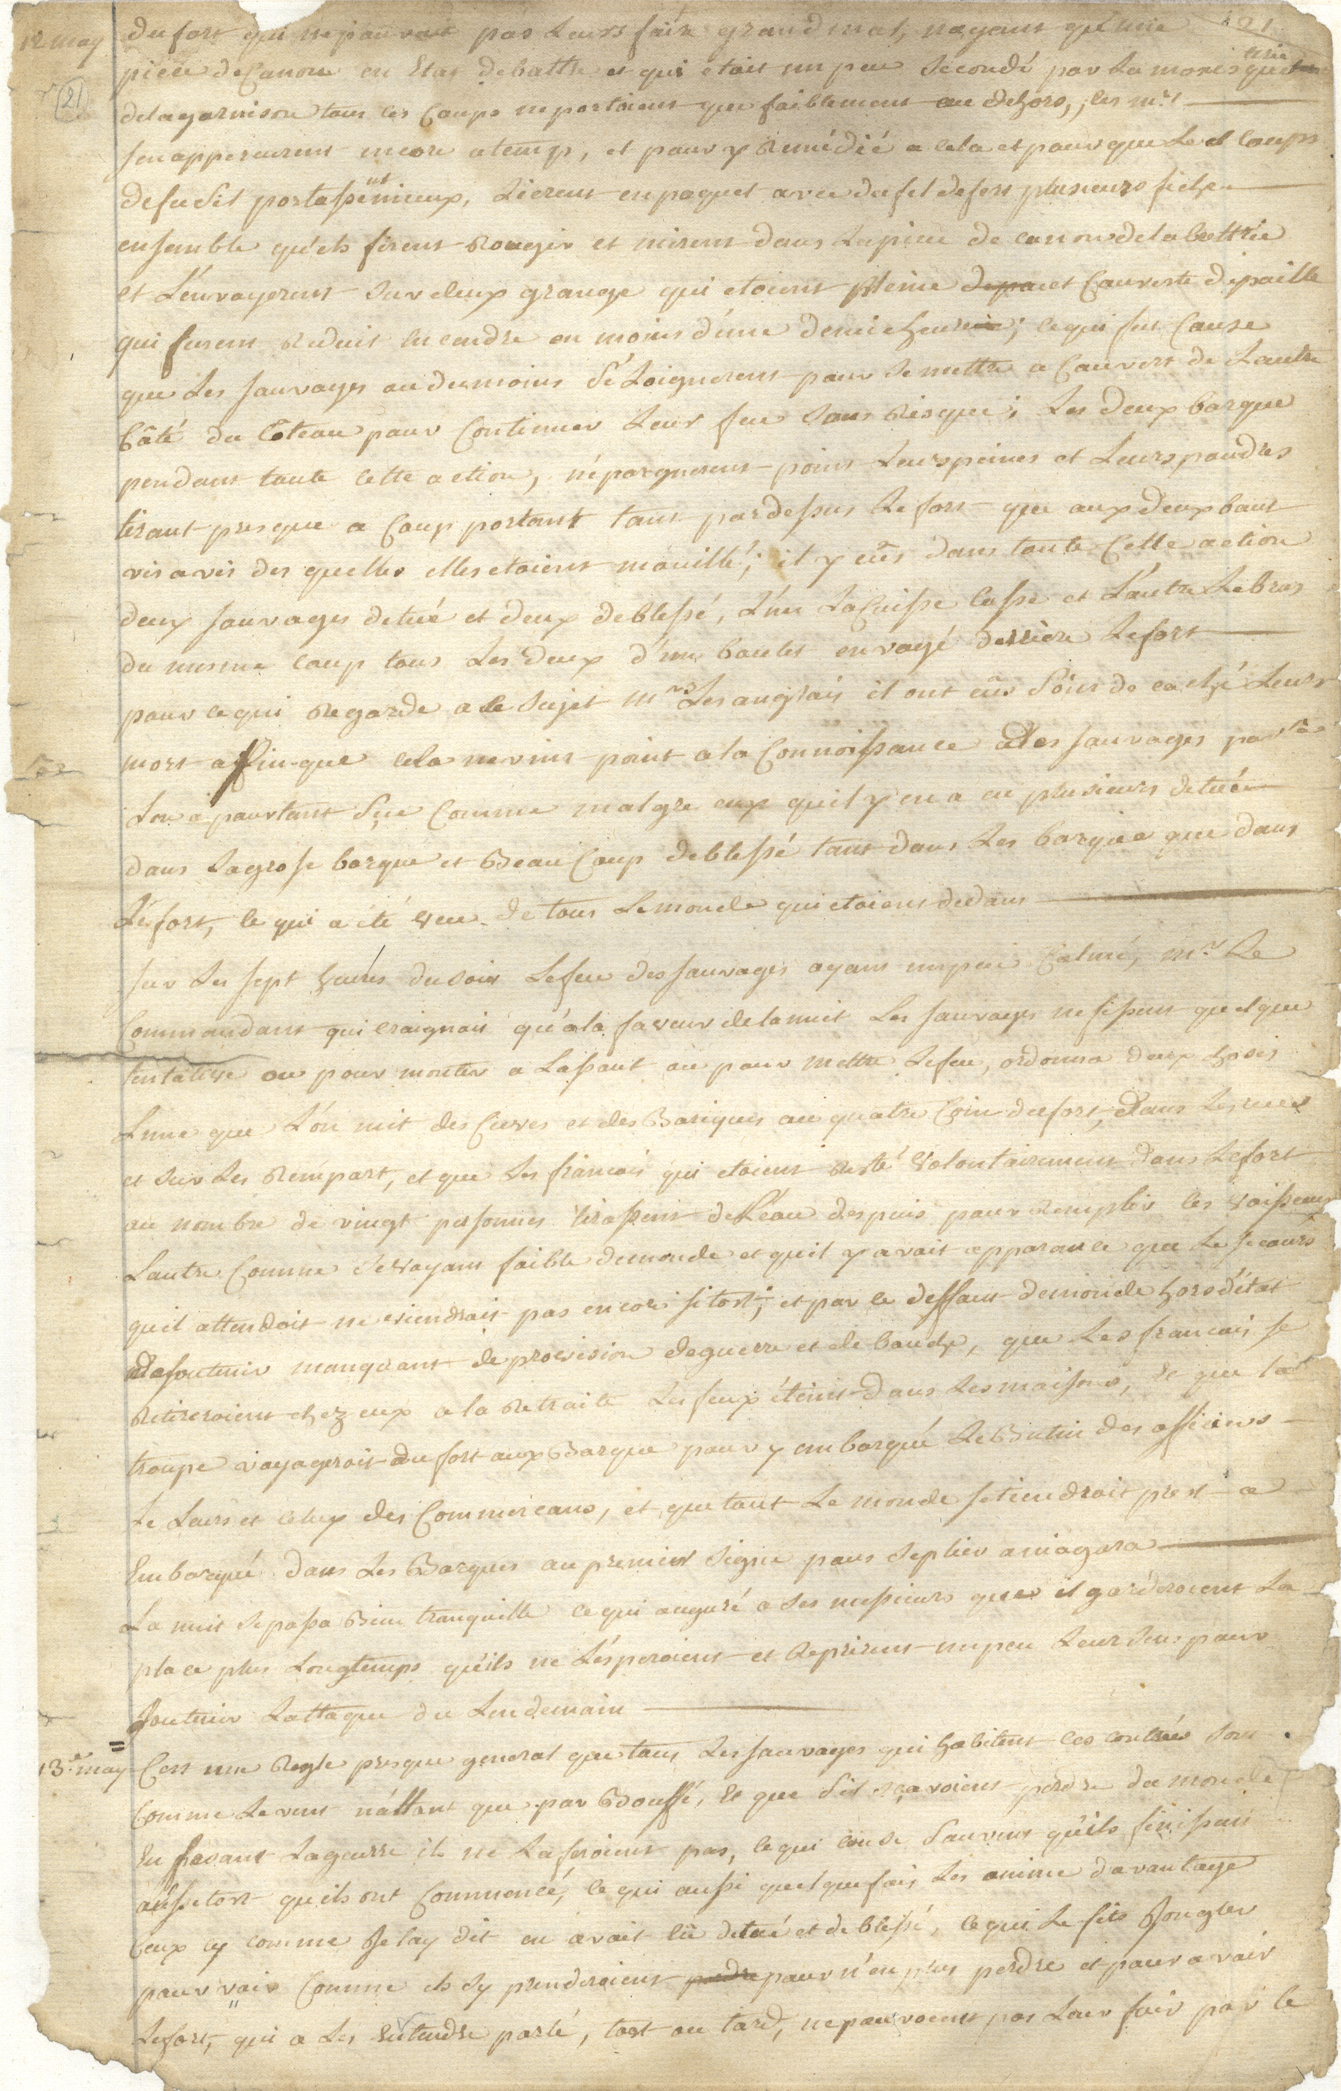 12 may
21
du fort qui ne pouvait pas Leurs faire grand mal, nayant qu'une
piece de Canon en Etat de battre et qui était un peu secondé par La mousqueterie
delagarnison tous ces Coups ne portoient que faiblement au dehors, les mrs
sen apperçurent encore atemp, et pour y Remédié a cela et pour que Le d Coups
de fusil portassent mieux, Lierent en paquet avec du fil de fert plusieurs fiche
ensemble qu'els firent Rougir et mirent dans Lapiece de canon de la battrie
et L'envoyerent sur deux grange qui etoient pleine et Couverte de paille
qui furent reduit en cendre en moins d'une demie heure; ce qui fut Cause
que Les sauvages au dumoins s'éloignerent pour se mettre a Couvert de Lautre
Côté du Côteau pour Continuer Leur feu sans Risque; Les deux barque
pendant toute cette action, n'épargnerent point Leurs peines et Leurs poudres
tirant presque a Coup portant tant pardessus Le fort que aux deux bout
vis a vis des quelles elles étoient mouillé; il y eus dans toute Cette action
deux sauvages detué et deux de blessé, L'un La Cuisse Casse et L'autre Lebras
du mesme coup tous Les deux d'un boulet envoyé derrière Lefort
pour ce qui Regarde a ce Sujet mrs Les anglais il ont eûs soins de caché Leurs
mort affin que cela ne vins point ala Connoissance des sauvages
Lon a pourtant sçue Comme malgre eux qu'il y en a eu plusieurs detué
dans La grosse barque et Beau Coup de blessé tant dans Les barque que dans
Le fort, ce qui a été veu de tous Le monde qui etoient dedans
sur Les sept heures du soir Le feu des sauvages ayant un peu Calmé, mr Le
Commandant qui craignoit qu'a la faveur de la nuit Les sauvages ne fissent quelque
tentative ou pour monter a Lassaut ou pour mettre Lefeu, ordonna deux choses
Lune que L'on mit des Cuves et des Bariques au quatre Coin du fort, dans Les rues
et sur Les Rempart, et que Les francais qui etoient resté volontairement dans Le fort
au nombre de vingt personnes tirassent de L'eau des puis pour Remplir ces vaisseaux
Lautre Comme se voyant faible de monde et qu'il y avait apparance que Le secours
qu'il attendoit ne viendrait pas encore sitost; et par ce deffaut de monde hors d'état
de soutenir manquant de provision de guerre et de bouche, que Les francais se
retireroient chez eux a la Retraite Les feux éteint dans Les maisons, et que La
troupe voyageroit du fort aux Barque pour y embarqué Le Butin des officiers
Le Leurs et celuy des Commercans, et que tout Le monde se tiendroit prest a
Embarqué dans Les Barques au premier signe pour seplier a niagara
La nuit se passa Bien tranquille ce qui auguré a Les messieurs ques il garderoient La
place plus Longtemps qu'ils ne L'ésperoient et Reprirent un peu Leur sens pour
soutenir Lattaque du Lendemain
13e may
C'est une Regle presque general que tous Les sauvages qui habitent ces contrées sont
Comme Le vent n'allant que par Bouffé, et que s'il sçavoient perdre du monde
En faisant La guerre ils ne La feroient pas, ce qui cause souvent qu'ils finissent
aussitost qu'ils ont Commencé, ce qui aussi quelquefois Les anime davantage
Ceux cy comme Je lay dit en avait eû detué et de blessé, ce qui Le fits Jongler
pour voir Comme ils sy prenderoient pour n'en plus perdre et pour avoir
Lefort, qui a Les Entendre parlé, tost ou tard, ne pouvoient pas Leur fuir par le